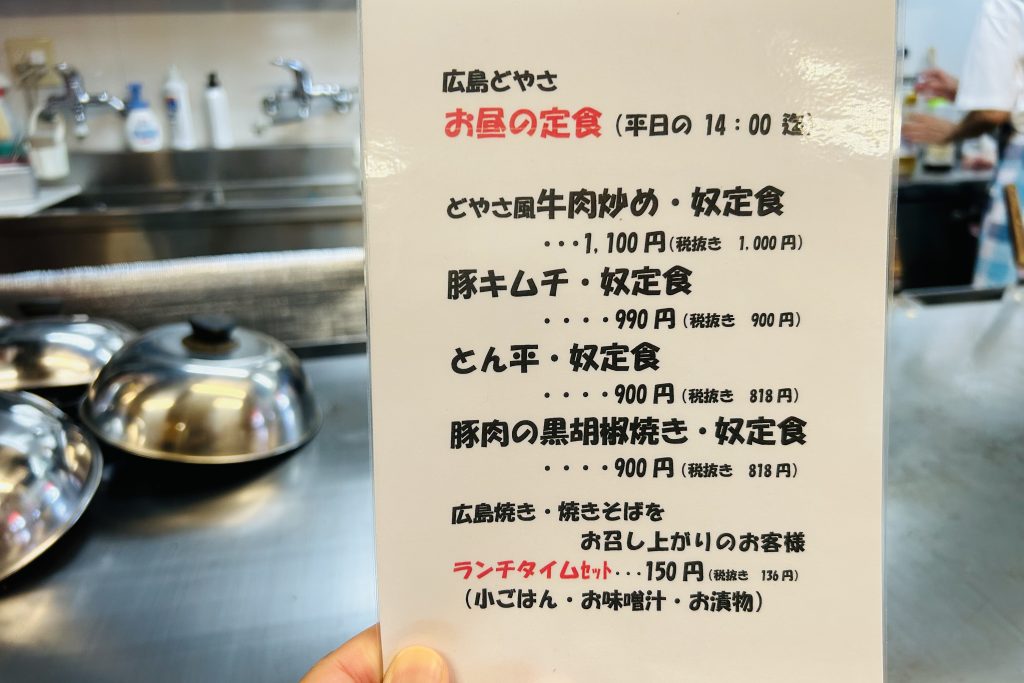 広島どやさ
お昼の定食（平日の 14：00 迄）
どやさ風牛肉炒め・奴定食
・・・1,100円（税抜き 1,000円）
豚キムチ・奴定食
・・・・990円（税抜き 900円）
とん平・奴定食
・・・・900円（税抜き 818円）
豚肉の黒胡椒焼き・奴定食
・・・・900円（税抜き 818円）
広島焼き・焼きそばを
お召し上がりのお客様
ランチタイムｾｯﾄ・・・150円（税抜き 136円）
（小ごはん・お味噌汁・お漬物）